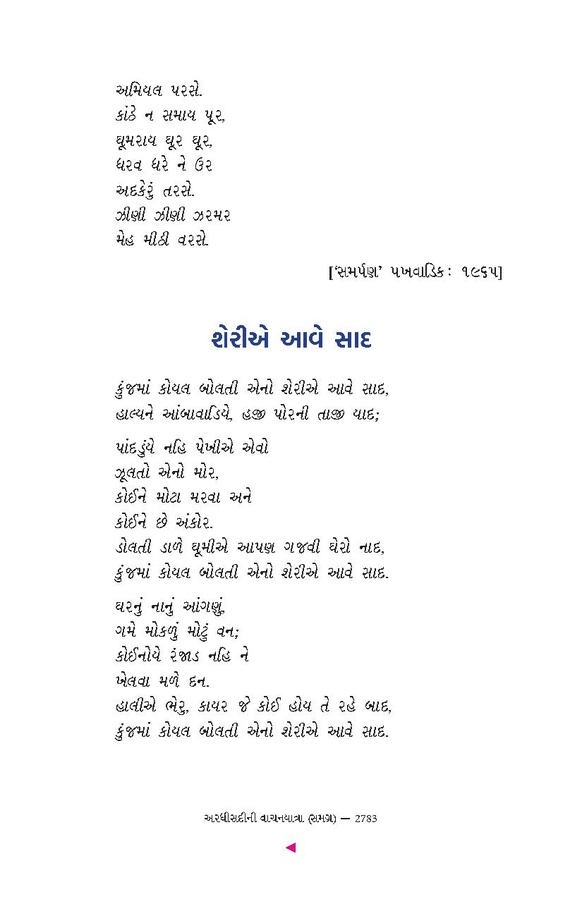 અમિયલ પરસે.
કાંઠે ન સમાય પૂર,
ઘૂમરાય ઘૂર ઘૂર,
ધરવ ધરે ને ઉર
અદકેરું તરસે.
ઝીણી ઝીણી ઝરમર
મેહ મીઠી વરસે.
[‘સમર્પણ’ પખવાડિક: ૧૯૬૫]
શેરીએ આવે સાદ
કુંજમાં કોયલ બોલતી એનો શેરીએ આવે સાદ,
હાલ્યને આંબાવાડિયે, હજી પોરની તાજી યાદ;
પાંદડુંયે નહિ પેખીએ એવો
ઝૂલતો એનો મોર,
કોઈને મોટા મરવા અને
કોઈને છે અંકોર.
ડોલતી ડાળે ઘૂમીએ આપણ ગજવી ઘેરો નાદ,
કુંજમાં કોયલ બોલતી એનો શેરીએ આવે સાદ.
ઘરનું નાનું આંગણું,
ગમે મોકળું મોટું વન;
કોઈનોયે રંજાડ નહિ ને
ખેલવા મળે દન.
હાલીએ ભેરુ, કાયર જે કોઈ હોય તે રહે બાદ,
કુંજમાં કોયલ બોલતી એનો શેરીએ આવે સાદ.
અરધીસદીની વાચનયાત્રા (સમગ્ર) — 2783